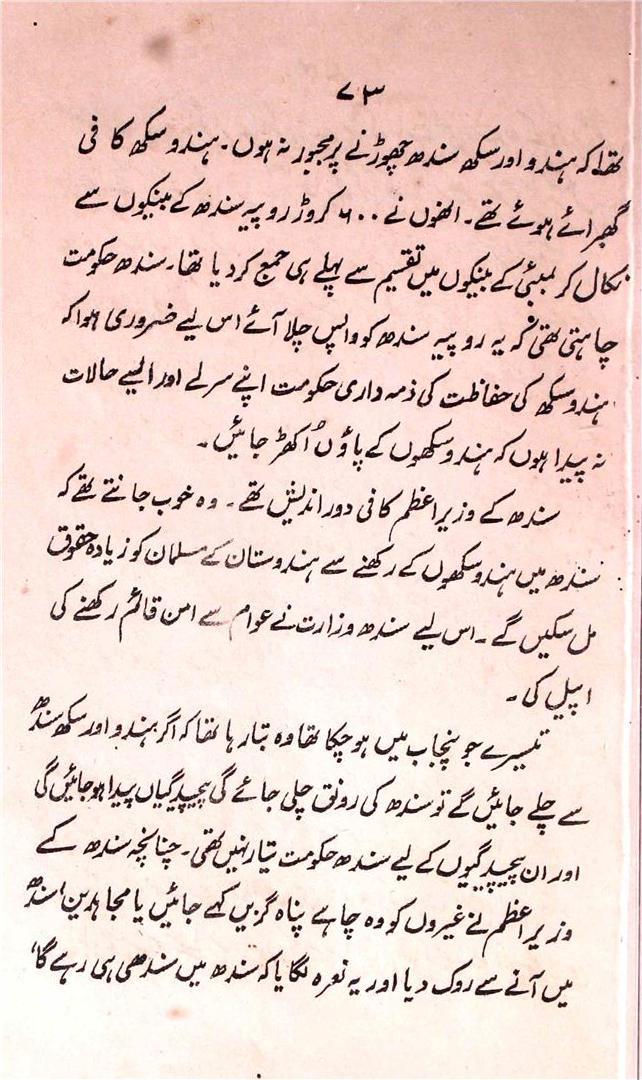 ۷۳
تھا کہ ہندو اور سکھ سندھ چھوڑنے پر مجبور نہ ہوں۔ ہندو سکھ کافی
گھبرائے ہوئے تھے۔ انھوں نے ۶۰۰ کروڑ روپیہ سندھ کے بینکوں سے
نکال کر بمبئی کے بینکوں میں تقسیم سے پہلے ہی جمع کر دیا تھا۔ سندھ حکومت
چاہتی تھی کہ یہ روپیہ سندھ کو واپس چلا آئے اس لیے ضروری ہوا کہ
ہندو سکھ کی حفاظت کی ذمہ داری حکومت اپنے سر لے اور ایسے حالات
نہ پیدا ہوں کہ ہندو سکھوں کے پاؤں اُکھڑ جائیں۔
سندھ کے وزیر اعظم کافی دور اندیش تھے۔ وہ خوب جانتے تھے کہ
سندھ میں ہندو سکھوں کے رکھنے سے ہندوستان کے مسلمان کو زیادہ حقوق
مل سکیں گے۔ اس لیے سندھ وزارت نے عوام سے امن قائم رکھنے کی
اپیل کی۔
تیسرے جو پنجاب میں ہو چکا تھا وہ بتا رہا تھا کہ اگر ہندو اور سکھ سندھ
سے چلے جائیں گے تو سندھ کی رونق چلی جائے گی پیچیدگیاں پیدا ہو جائیں گی
اور ان پیچیدگیوں کے لیے سندھ حکومت تیار نہیں تھی۔ چنانچہ سندھ کے
وزیر اعظم نے غیروں کو وہ چاہے پناہ گزیں کہے جائیں یا مجاہدین، سندھ
میں آنے سے روک دیا اور یہ نعرہ لگایا کہ سندھ میں سندھی ہی رہے گا،